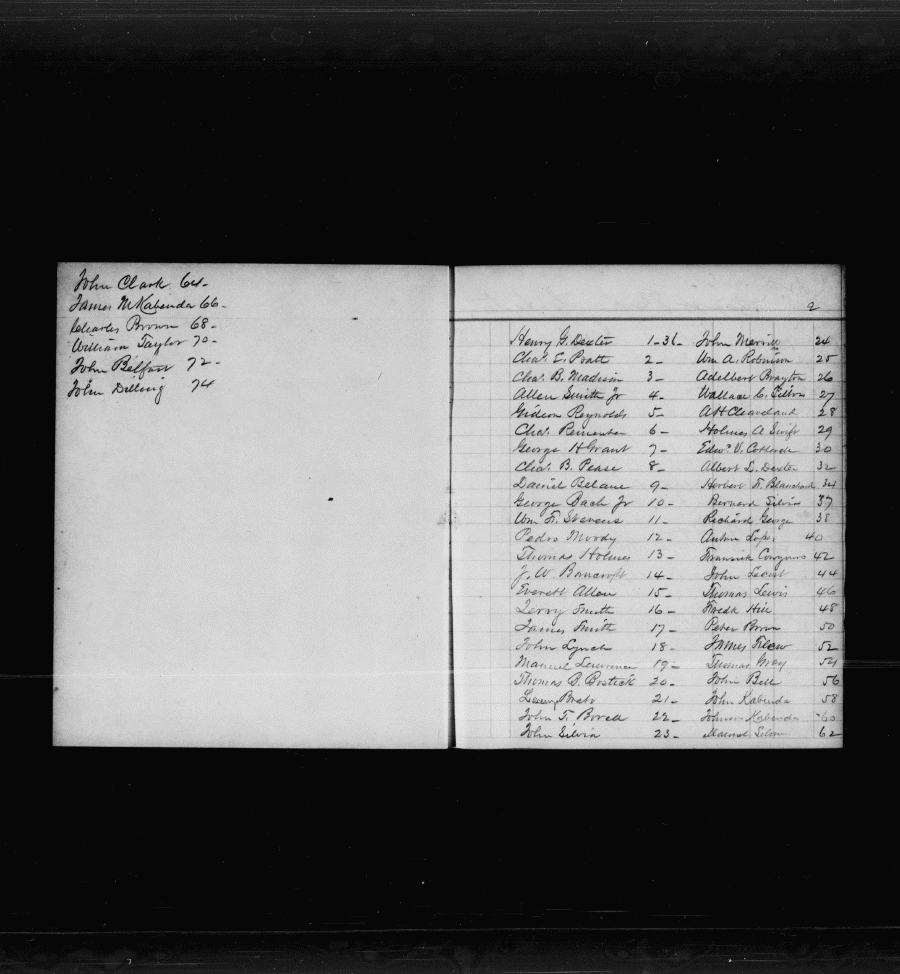 John Clark 64-
James McKabenda 66-
Charles Brown 68-
William Taylor 70-
John Belfast 72-
John Delling 74
2
Henry G. Dexter 1-36- John Merrill 24
Chas. E. Pratt 2- Wm A. Robinson 25
Chas. B. Madison 3- Adelbert Brayton 26
Allen Smith Jr 4- Wallace C. 27
Gideon Reynolds 5- AH Cleaveland 28
Chas. 6- Holmes A Swift 29
George H Grant 7- Edwd. V. 30
Chas. B. Pease 8- Albert L. Dexter 32
Daniel Belane 9- Herbert F. Blanchard 34
George Bach Jr 10- Bernard Silvia 37
Wm F. Stevens 11- Richard George 38
Pedro Moody 12- Anton Lopes 40
Thomas Holmes 13- 42
J. W. Bancroft 14- John 44
Everett Allen 15- Thomas Lewis 46
Leroy Smith 16- Fredk Hill 48
James Smith 17- Peter Brown 50
John Lynch 18- James 52
Manuel Lawrence 19- Thomas Gray 54
Thomas B. Bostick 20- John Bell 56
21- John Kabenda 58
John T. 22- Kabenda 60
John Silvia 23- Manuel 62